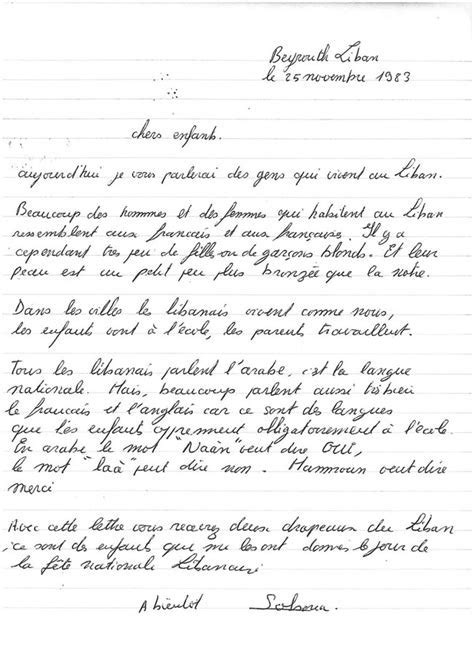 Beyrouth Liban
le 25 novembre 1983
chers enfants.
aujourd'hui je vous parlerai des gens qui vivent au Liban.
Beaucoup des hommes et des femmes qui habitent au Liban
ressemblent aux francais et aux françaises. Il y a
cependant tres peu de fille ou de garçons blonds. Et leur
peau est un petit peu plus bronzée que la notre.
Dans les villes les libanais vivent comme nous,
les enfants vont à l'école, les parents travaillent.
Tous les libanais parlent l'arabe, c'est la langue
nationale. Mais, beaucoup parlent aussi très bien
le francais et l'anglais car ce sont des langues
que les enfants apprennent obligatoirement à l'école.
En arabe le mot "Naàn" veut dire OUI,
le mot "laà" veut dire non. Hamroun veut dire
merci
Avec cette lettre vous recevrez deux drapeaux du Liban
, ce sont de enfants que me les ont donnés le jour de
la fête nationale Libanaise
A bientot